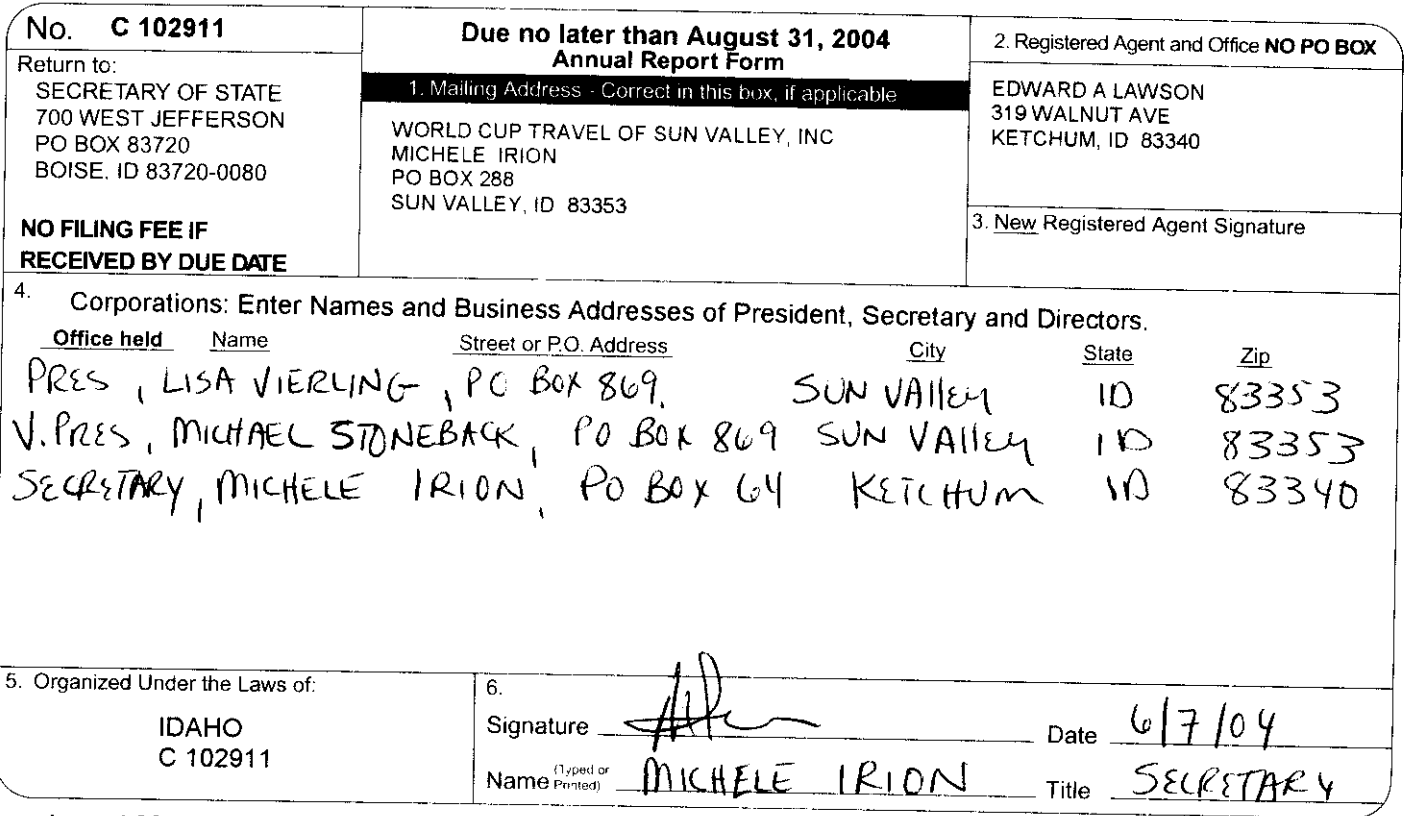 No. C 102911
Return to:
SECRETARY OF STATE
700 WEST JEFFERSON
PO BOX 83720
BOISE, ID 83720-0080
NO FILING FEE IF
RECEIVED BY DUE DATE
Due no later than August 31, 2004
Annual Report Form
1. Mailing Address - Correct in this box, if applicable
WORLD CUP TRAVEL OF SUN VALLEY, INC
MICHELE IRION
PO BOX 288
SUN VALLEY, ID 83353
2. Registered Agent and Office NO PO BOX
EDWARD A LAWSON
319 WALNUT AVE
KETCHUM, ID 83340
3. New Registered Agent Signature
4. Corporations: Enter Names and Business Addresses of President, Secretary and Directors.
Office held Name Street or P.O. Address City State Zip
PRES, LISA VIERLING, PO BOX 869, SUN VAllEY ID 83353
V. PRES, MICHAEL STONEBACK, PO BOX 869 SUN VAllEY ID 83353
SECRETARY, MICHELE IRION, PO BOX 64 KETCHUM ID 83340
5. Organized Under the Laws of:
IDAHO
C 102911
6.
Signature Date 6/7/04
Name (Typed or Printed) MICHELE IRION Title SECRETARY